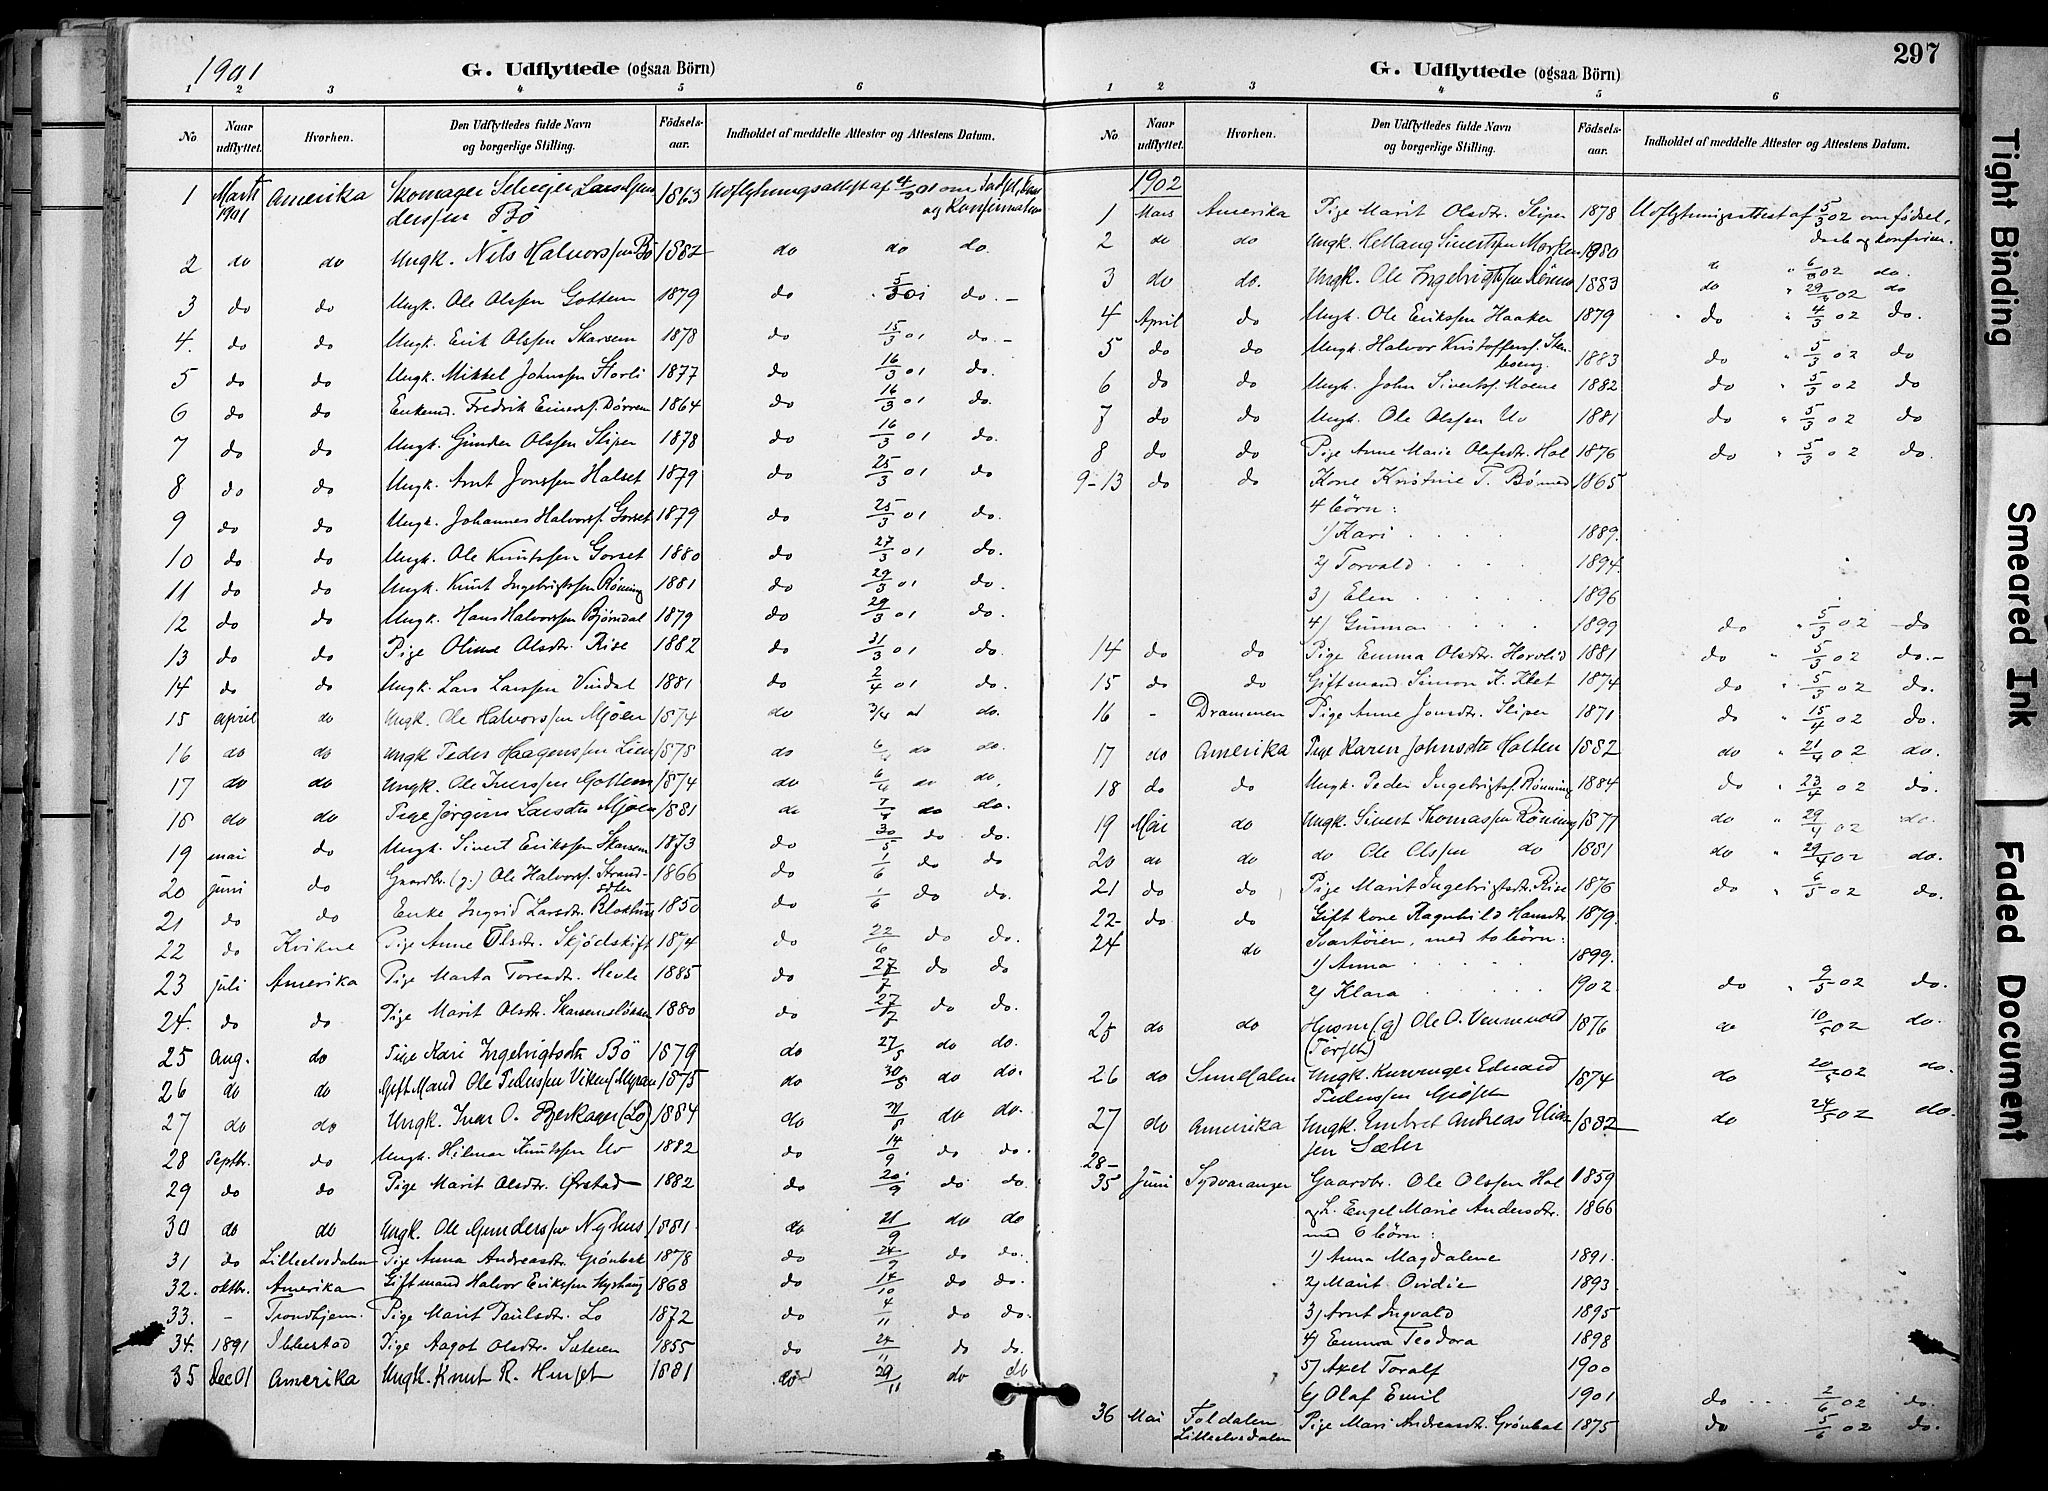 1901
G. Udflyttede (ogsaa Börn)
1 2 3 4 5 6
No
Naar udflyttet.
Hvorhen.
Den Udflyttedes fulde Navn og borgerlige Stilling.
Födsels-aar.
Indholdet af meddelte Attester og Attestens Datum.
1 Marts 1901 Amerika Skomager Lars Gun- 1863 Udflytningsattest af 4/3 01 om
derssen Bö og Konfirmation
2 do do Ungk. Nils Halvorssen Bö 1882 do do do.
3 do do Ungk. Ole Olssen Gottem 1879 do 5/3 01 do.
4. do do Ungk. Erik Olssen Skarsem 1878 do 15/3 01 do.
5 do do Ungk. Mikkel Johnssen Storli 1877 do 16/3 01 do.
6 do do Enkem. Fredrik Einerss. Dörrem 1864 do 16/3 01 do.
7 do do Ungk. Gunder Olssen Sliper 1878 do 16/3 01 do.
8 do do Ungk. Arnt Jonssen Halset 1879 do 25/3 01 do.
9 do do Ungk. Johannes Halvorss. Gorset 1879 do 25/3 01 do.
10 do do Ungk. Ole Knutssen Gorset 1880 do 27/3 01 do.
11 do do Ungk. Knut Ingebrigtssen Rönning 1881 do 29/3 01 do.
12 do do Ungk. Hans Halvorssen Björndal 1879 do 29/3 01 do.
13 do do Pige Oline Olsdtr. Rise 1882 do 31/3 01 do.
14 do do Ungk. Lars Larssen Vindal 1881 do 2/4 01 do.
15 april do Ungk. Ole Halvorssen Mjöen 1874 do 3/4 01 do.
16 do do Ungk Peder Haagenssen Lien 1878 do 6/4 do do.
17 do do Ungk. Ole Iverssen Gottem 1874 do 6/4 do do.
18 do do Pige Jörgine Larsdtr Mjöen 1881 do 7/4 do do.
19 mai do Ungk. Sivert Erikssen Skarsem 1873 do 30/5 do do.
20 juni do Gaardbr. (g.) Ole Halvorss. Strand- 1866 do 1/6 do do
21 do do Enke Ingrid Larsdtr. Blokhus 1850 do 1/6 do do.
22 do Kvikne Pige Anne Olsdtr. Skjödskift 1874 do 22/6 do do.
23 juli Amerika Pige Marta Toresdtr. Hevle 1885 do 27/7 do do
24. do do Pige Marit Olsdtr. Skarsemslökken 1880 do 27/7 do do
25 Aug. do Pige Kari Ingebrigtsdtr Bö 1879 do 27/8 do do.
26 do do Gift Mand Ole Pederssen Viken (Myran 1875 do 30/8 do do.
27 do do Ungk. Ivar O. Bjerkager (Lo) 1884 do 31/8 do do
28 Septbr. do Ungk. Hilmar Knutssen Uv 1882 do 14/9 do do.
29 do do Pige Marit Olsdtr. Örstad 1882 do 20/9 do do.
30 do do Ungk. Ole Gunderssen Nyhus 1881 do 21/9 do do
31 do Lilleelvedalen Pige Anna Andreasdtr. Grönbak 1878 do 24/9 do do.
32. oktbr. Amerika Gift mand Halvor Erikssen Nyhaug 1868 do 14/10 do do.
33. – Trondhjem. Pige Marit Paulsdtr. Lo 1872 do 4/11 do do.
34. 1891 Ibbestad Pige Aagot Olsdtr. Sæteren 1855 do 24/11 do do.
35 Dec 01 Amerika Ungk. Knut R. Husset 1881 do 29/11 do do
297
G. Udflyttede (ogsaa Börn)
1 2 3 4 5 6
No
Naar udflyttet.
Hvorhen.
Den Udflyttedes fulde Navn og borgerlige Stilling.
Födsels-aar.
Indholdet af meddelte Attester og Attestens Datum.
1902
1 Mars Amerika Pige Marit Olsdtr. Sliper 1878 Udflytningsattest af 5/3 02 om födsel,
daab og konfirm.
2 do do Ungk. Helling Sivertssen Morken 1880 do " 6/3 02 do.
3 do do. Ungk. Ole Ingebrigtssen 1883 do " 29/3 02 do
4 April do Ungk. Ole Erikssen Haaker 1879 do " 4/3 02 do.
5 do do Ungk. Halvor Kristofferss. Sten- 1883 do " 5/3 02 do
6 do do Ungk. John Sivertss. Moene 1882 do " 5/3 02 do
7 do do Ungk. Ole Olssen Uv 1881 do " 5/3 02 do
8 do do Pige Anne Marie Olafsdtr. Hol 1876 do " 5/3 02 do.
9-13 do do Kone Kristine T. Bö med 1865
4 börn:
1) Kari 1889.
2) Torvald 1894.
3) Elen 1896
4) Gunnar 1899 do " 5/3 02 do
14 do do Pige Emma Olsdtr. Horvlid 1881 do " 5/3 02 do.
15 do do Gift mand Simon K. Klet 1874 do " 5/3 02 do.
16 - Drammen Pige Anne Jonsdtr. Sliper 1871 do " 15/4 02 do.
17 do Amerika Pige Karen Johnsdtr Holten 1882 do " 21/4 02 do.
18 do do Ungk. Peder Ingebrigtss. Rönning 1884 do " 23/4 02 do.
19 Mai do Ungk. Sivert Thomassen Rönning 1877 do " 29/4 02 do.
20 do do do Ole Olssen do 1881 do " 29/4 02 do.
21 do do Pige Marit Ingebrigtsdtr. Rise 1876 do " 6/5 02 do.
22- do do Gift kone Ragnhild Hansdtr 1879.
24 do Svartöien, med to börn:
1) Anna 1899.
2) Klara 1902. do " 9/5 02 do.
25 do do Husm. (g) Ole O. Vennevold 1876 do 10/5 02 do.
26 do Sundalen Ungk. Edvard 1874 do 20/5 02 do.
Pederssen
27 do Amerika Ungk. Embret Andreas Elia- 1882 do 24/5 02 do.
sen Sæter
28-
35 Juni Sydvaranger Gaardbr. Ole Olssen Hol 1859
og h. Engel Marie Andersdtr. 1866
med 6 börn:
1) Anna Magdalene 1891.
2) Marit Ovidie 1893.
3) Arnt Ingvald 1895
4) Emma Teodora 1898
5) Axel Toralf 1900
6) Olaf Emil 1901 do 2/6 02 do.
36 Mai Foldalen Pige Mari Andreasdtr. Grönbak 1875 do 5/6 02 do.
Lilleelvedalen
Tight Binding
Smeared Ink
Faded Document